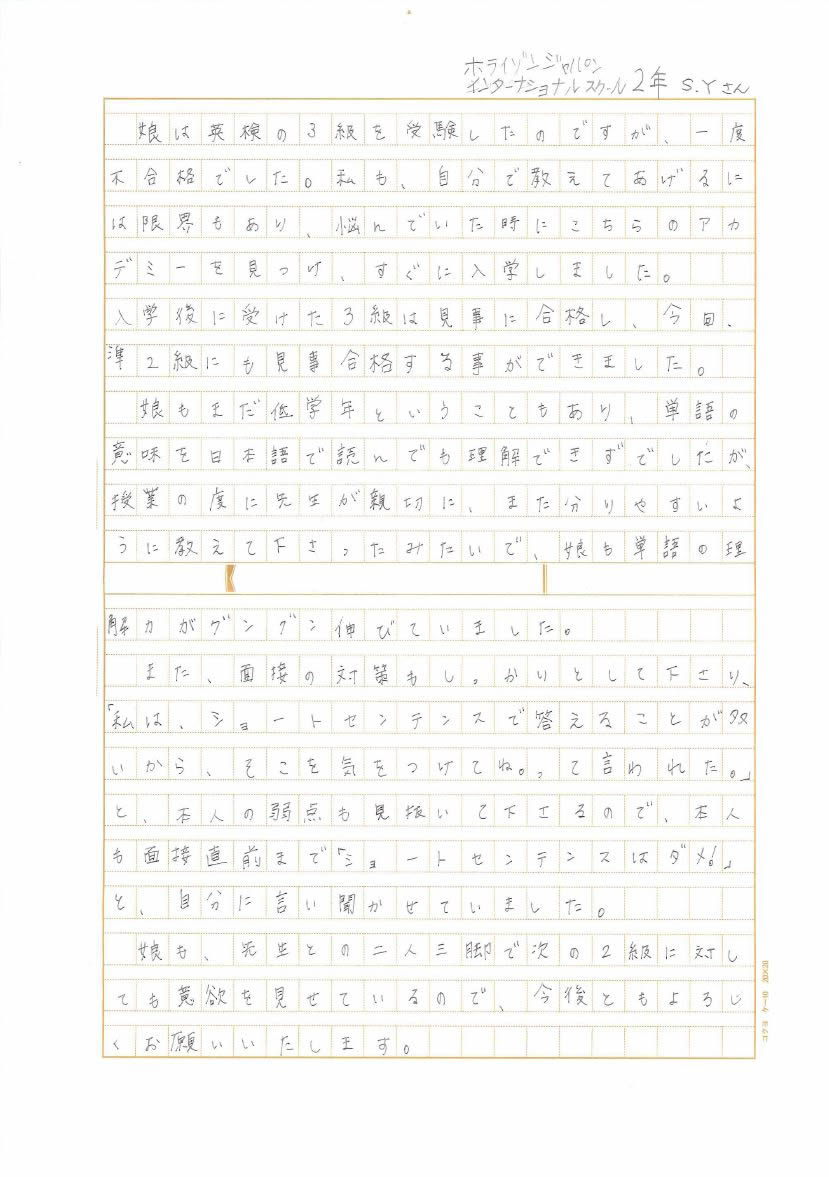 ホライゾンジャパン
インターナショナルスクール 2年 S.Yさん
娘は英検の3級を受験したのですが、一度
不合格でした。私も、自分で教えてあげるに
は限界もあり、悩んでいた時にこちらのアカ
デミーを見つけ、すぐに入学しました。
入学後に受けた3級は見事に合格し、今回、
準2級にも見事合格する事ができました。
娘もまだ低学年ということもあり、単語の
意味を日本語で読んでも理解できずでしたが、
授業の度に先生が親切に、また分りやすいよ
うに教えて下さったみたいで、娘も単語の理
解力がグングン伸びていました。
また、面接の対策もしっかりとして下さり、
「私は、ショートセンテンスで答えることが多
いから、そこを気をつけてね。って言われた。」
と、本人の弱点も見抜いて下さるので、本人
も面接直前まで「ショートセンテンスはダメ!」
と、自分に言い聞かせていました。
娘も、先生との二人三脚で次の2級に対し
ても意欲を見せているので、今後ともよろし
くお願いいたします。